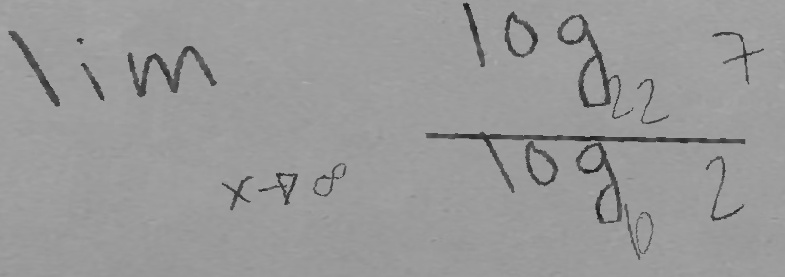 lim x→∞ log₂₂ 7
log₆ 2